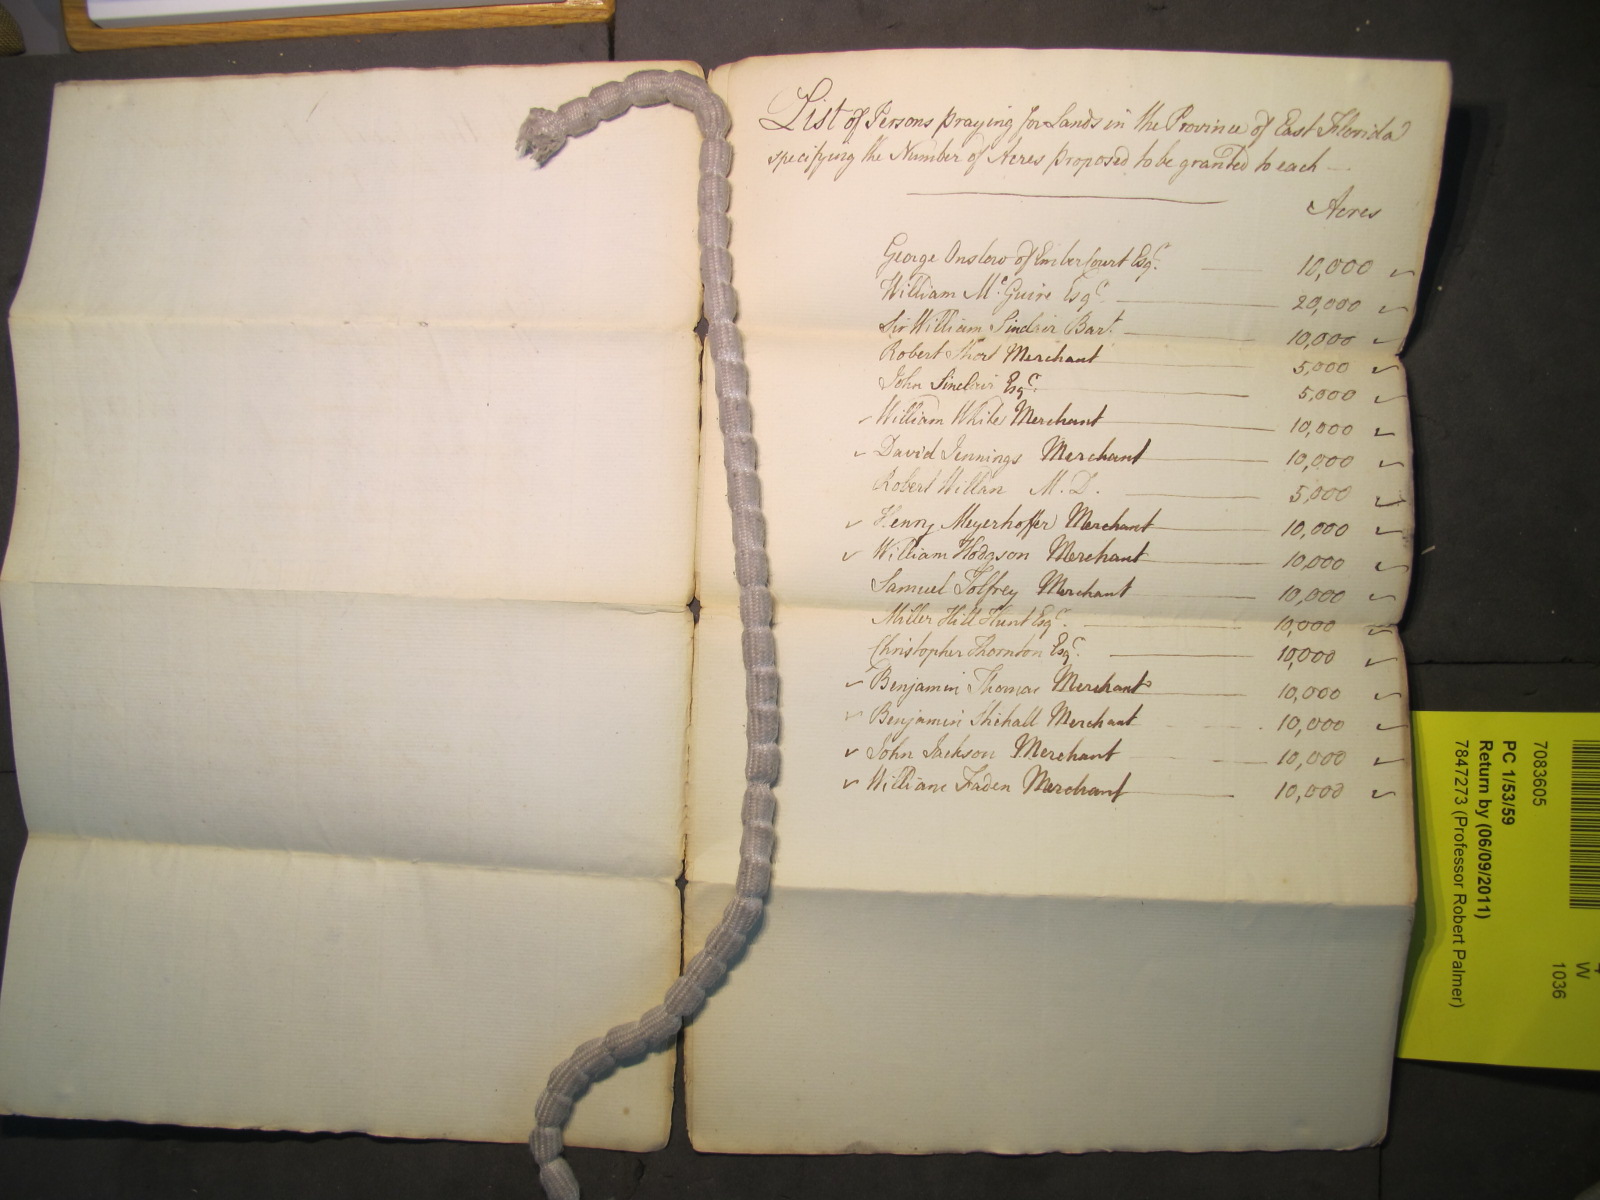 List of Persons praying for Lands in the Province of East Florida
specifying the Number of Acres proposed to be granted to each
Acres
George Onslow of Ember Court Esqr. 10,000 ✓
William McGuire Esqr. 20,000 ✓
Sir William Sinclair Bart. 10,000 ✓
Robert Short Merchant 5,000 ✓
John Sinclair Esqr. 5,000 ✓
✓ William White Merchant 10,000 ✓
✓ David Jennings Merchant 10,000 ✓
Robert Willan M.D. 5,000 ✓
✓ Henry Meyerhoffer Merchant 10,000 ✓
✓ William Hodgson Merchant 10,000 ✓
Samuel Tolfrey Merchant 10,000 ✓
Miller Hill Hunt Esqr. 10,000 ✓
Christopher Thornton Esqr. 10,000 ✓
✓ Benjamin Thomas Merchant 10,000 ✓
✓ Benjamin Merchant 10,000 ✓
✓ John Jackson Merchant 10,000 ✓
✓ William Faden Merchant 10,000 ✓
W
7083605 1036
PC 1/53/59
Return by (06/09/2011)
7847273 (Professor Robert Palmer)